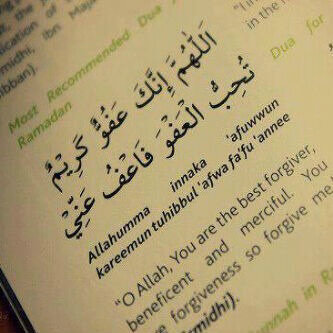 cation of
midhi, Ibn Maja
hibban).
"I in
in the n
Most Recommended Dua
Ramadan
Dua for
اَللّٰهُمَّ إِنَّكَ عَفُوٌّ كَرِيْمٌ
تُحِبُّ الْعَفْوَ فَاعْفُ عَنِّيْ
Allahumma innaka 'afuwwun
kareemun tuhibbul 'afwa fa'fu 'annee
"O Allah, You are the best forgiver,
beneficent and merciful. You
forgiveness so forgive me
midhi).
nnah in R